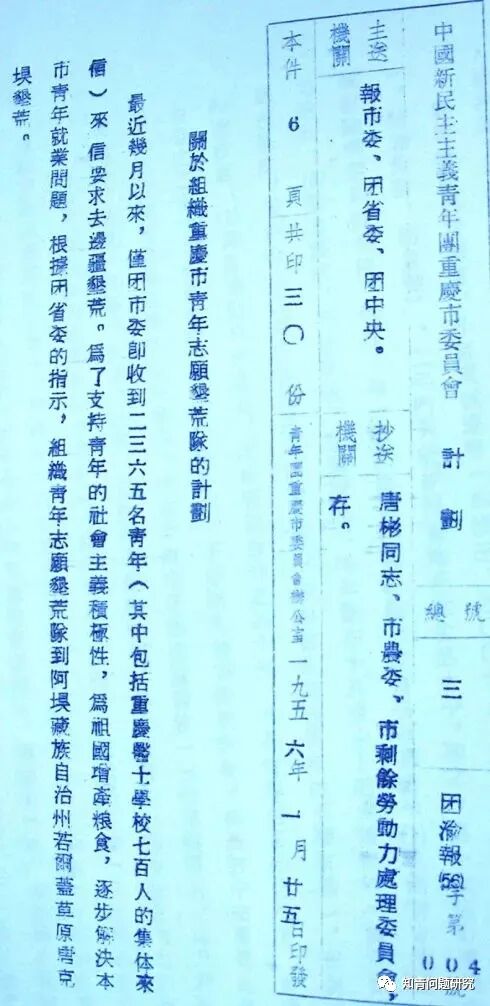 中國新民主主義青年團重慶市委員會 計劃
總號 三 团渝報(56)字第004號
主送機關 報市委、团省委、团中央。
抄送機關 唐彬同志、市農委、市剩餘勞動力處理委員會,
存。
本件6頁共印三〇份 青年團重慶市委員會辦公室一九五六年一月廿五日印發
關於組織重慶市青年志願墾荒隊的計劃
最近幾月以來,僅团市委卽收到二三六五名青年(其中包括重慶醫士學校七百人的集体來
信)來信要求去邊疆墾荒。爲了支持青年的社會主義積極性,爲祖國增產粮食,逐步解決本
市青年就業問題,根據团省委的指示,組織青年志願墾荒隊到阿垻藏族自治州若爾蓋草原唐克
垻墾荒。
知青问题研究